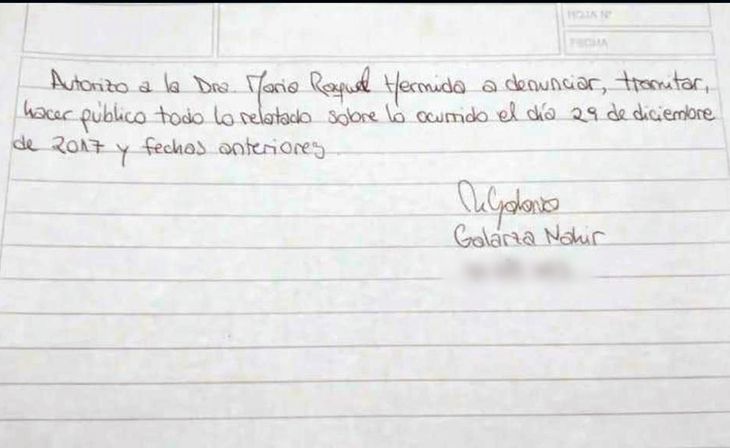 HOJA Nº
FECHA
Autorizo a la Dra. Maria Raquel Hermida a denunciar, tramitar,
hacer público todo lo relatado sobre lo ocurrido el día 29 de diciembre
de 2017 y fechas anteriores
NGalarza
Galarza Nahir